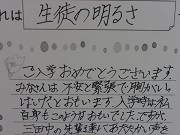 れは 生徒の明るさ
ご入学おめでとうございます。
みなさんは不安と緊張で胸がいっ
ぱいだとおもいます。入学時は私
自身もこのようなおもいでした。ですが、
三田中の先輩達 あたたかい声を